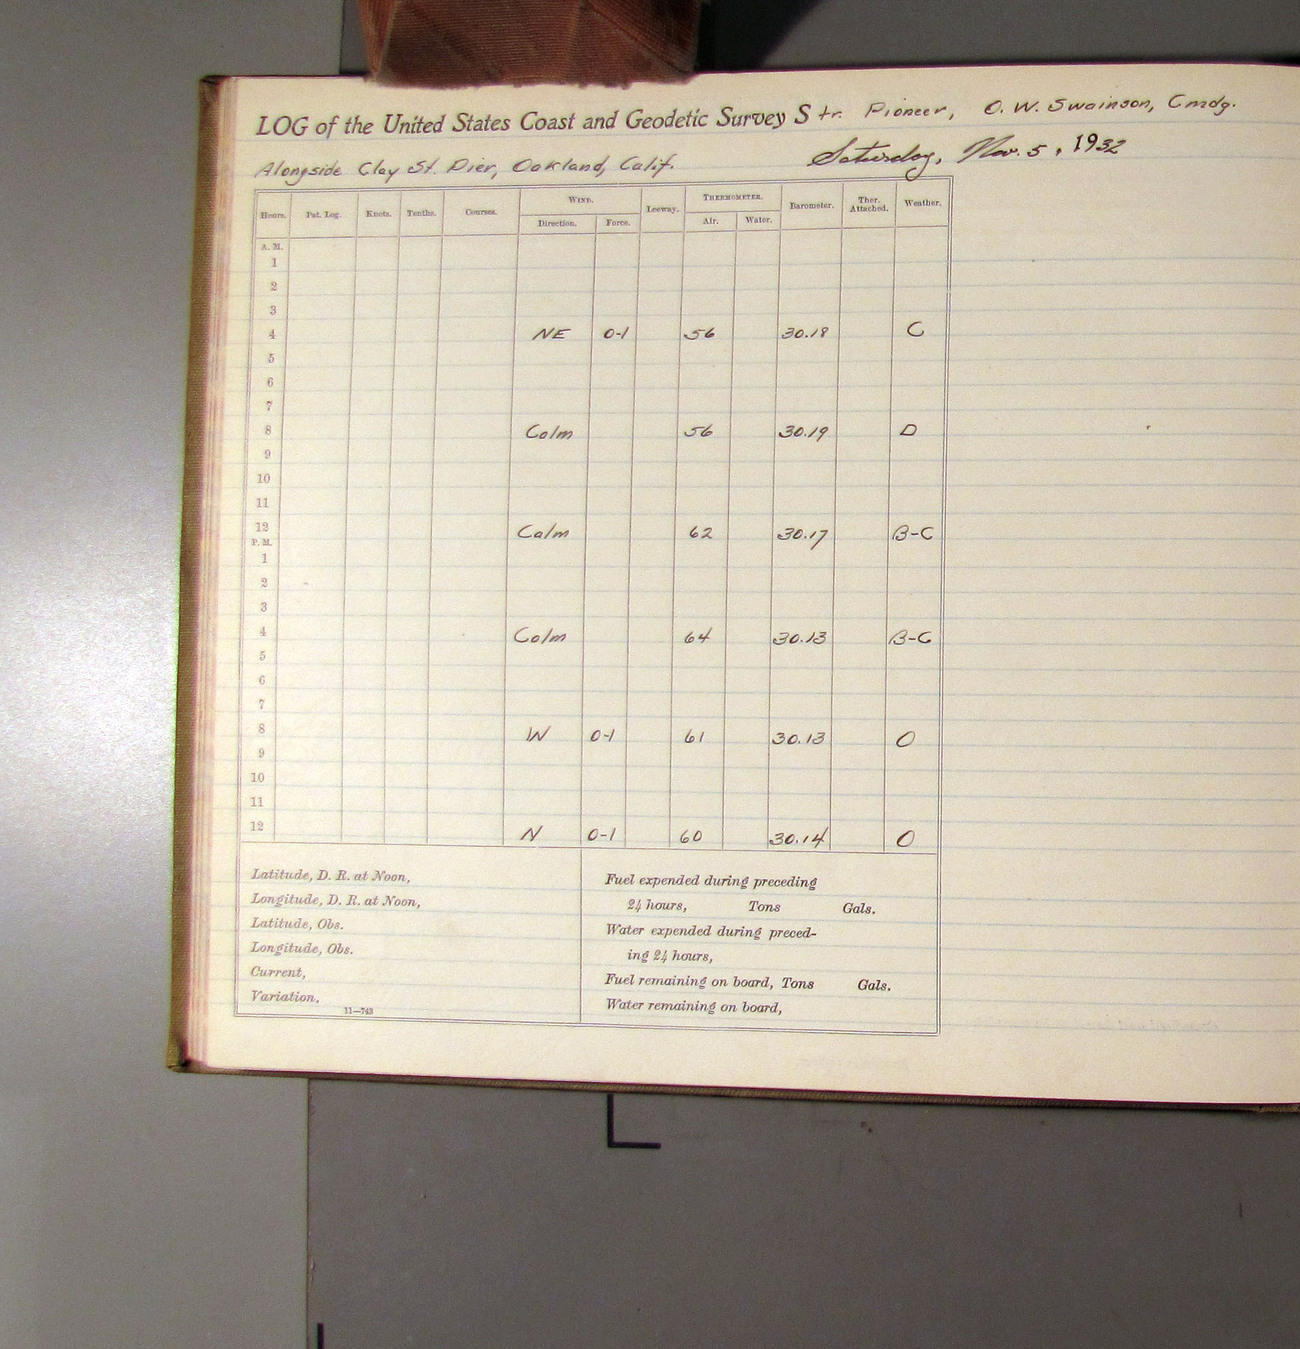 LOG of the United States Coast and Geodetic Survey Str. Pioneer, O. W. Swainson, Cmdg.
Alongside Clay St. Pier, Oakland, Calif. Saturday, Nov. 5, 1932
Hours. Pat. Log. Knots. Tenths. Courses. WIND. Leeway. THERMOMETER. Barometer. Ther. Attached. Weather.
Direction. Force. Air. Water.
A. M.
1
2
3
4 NE 0-1 56 30.18 C
5
6
7
8 Calm 56 30.19 O
9
10
11
12 Calm 62 30.17 B-C
P. M.
1
2
3
4 Calm 64 30.13 B-C
5
6
7
8 W 0-1 61 30.13 O
9
10
11
12 N 0-1 60 30.14 O
Latitude, D. R. at Noon,
Longitude, D. R. at Noon,
Latitude, Obs.
Longitude, Obs.
Current,
Variation,
11—743
Fuel expended during preceding
24 hours, Tons Gals.
Water expended during preced-
ing 24 hours,
Fuel remaining on board, Tons Gals.
Water remaining on board,